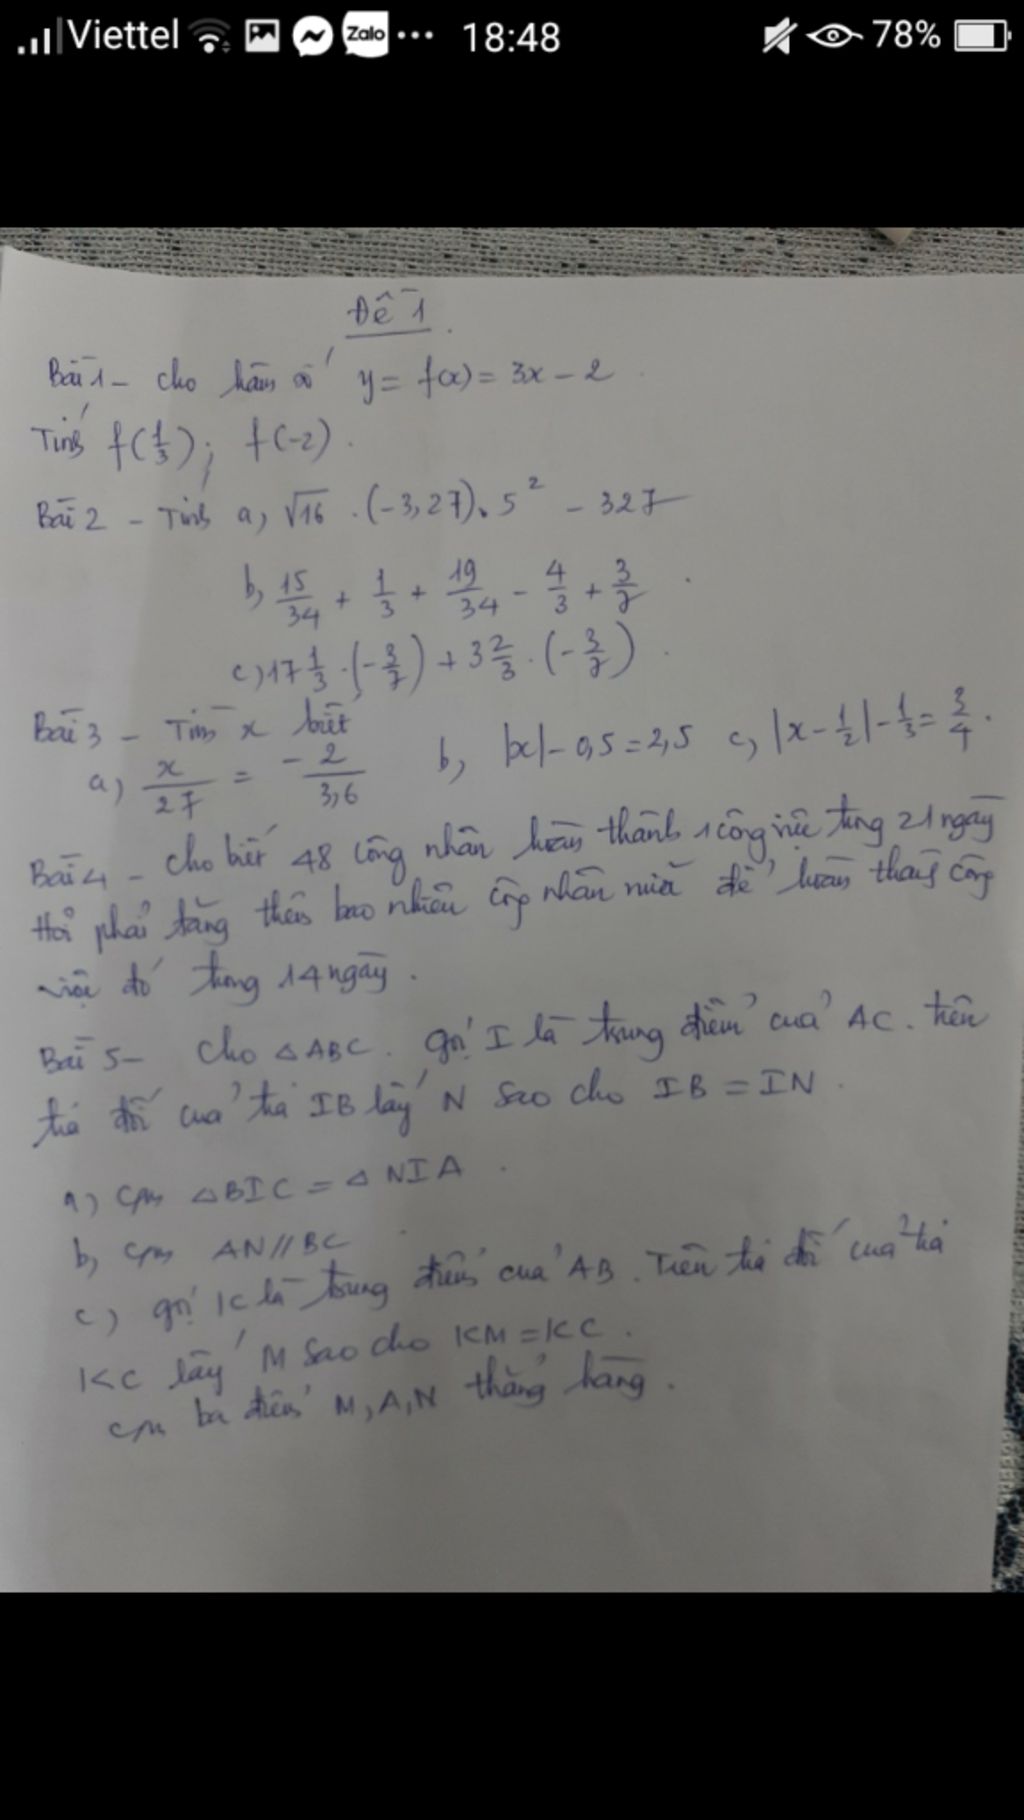 Viettel Zalo 18:48 78%
Đề 1
Bài 1 - cho hàm số y = f(x) = 3x - 2
Tính f(1/3); f(-2).
Bài 2 - Tính a, √16 . (-3,27). 5² - 327
b, 15/34 + 1/3 + 19/34 - 4/3 + 3/7
c) 17 1/3 . (-3/7) + 3 2/3 . (-3/7)
Bài 3 - Tìm x biết
a) x/27 = -2/3,6 b, |x| - 0,5 = 2,5 c, |x - 1/2| - 1/3 = 3/4.
Bài 4 - cho biết 48 công nhân hoàn thành 1 công việc trong 21 ngày
Hỏi phải tăng thêm bao nhiêu công nhân nữa để hoàn thành công
việc đó trong 14 ngày.
Bài 5 - Cho △ABC. gọi I là trung điểm của AC. trên
tia đối của tia IB lấy N sao cho IB = IN.
a) cm △BIC = △NIA.
b, cm AN // BC
c) gọi K là trung điểm của AB. Trên tia đối của tia
KC lấy M sao cho KM = KC.
cm ba điểm M, A, N thẳng hàng.